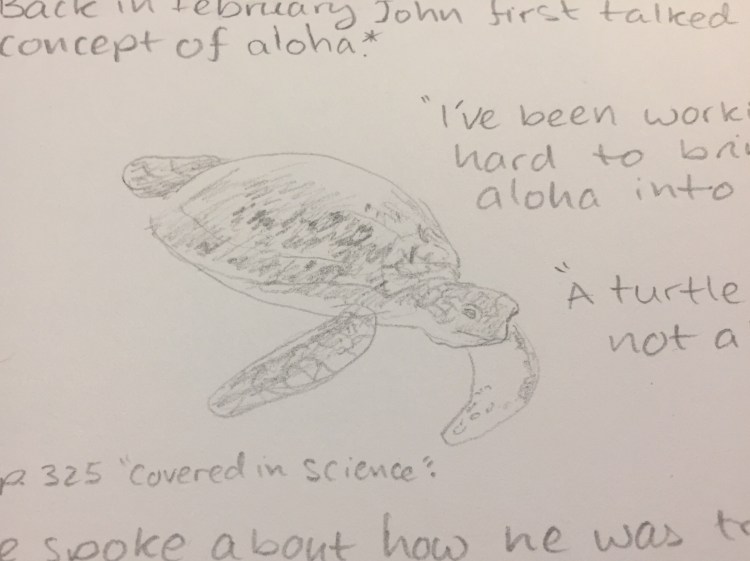 Back in February John first talked
concept of aloha.*
"I've been worki
hard to bri
aloha into
"A turtle
not a
p. 325 "Covered in science":
e spoke about how he was to